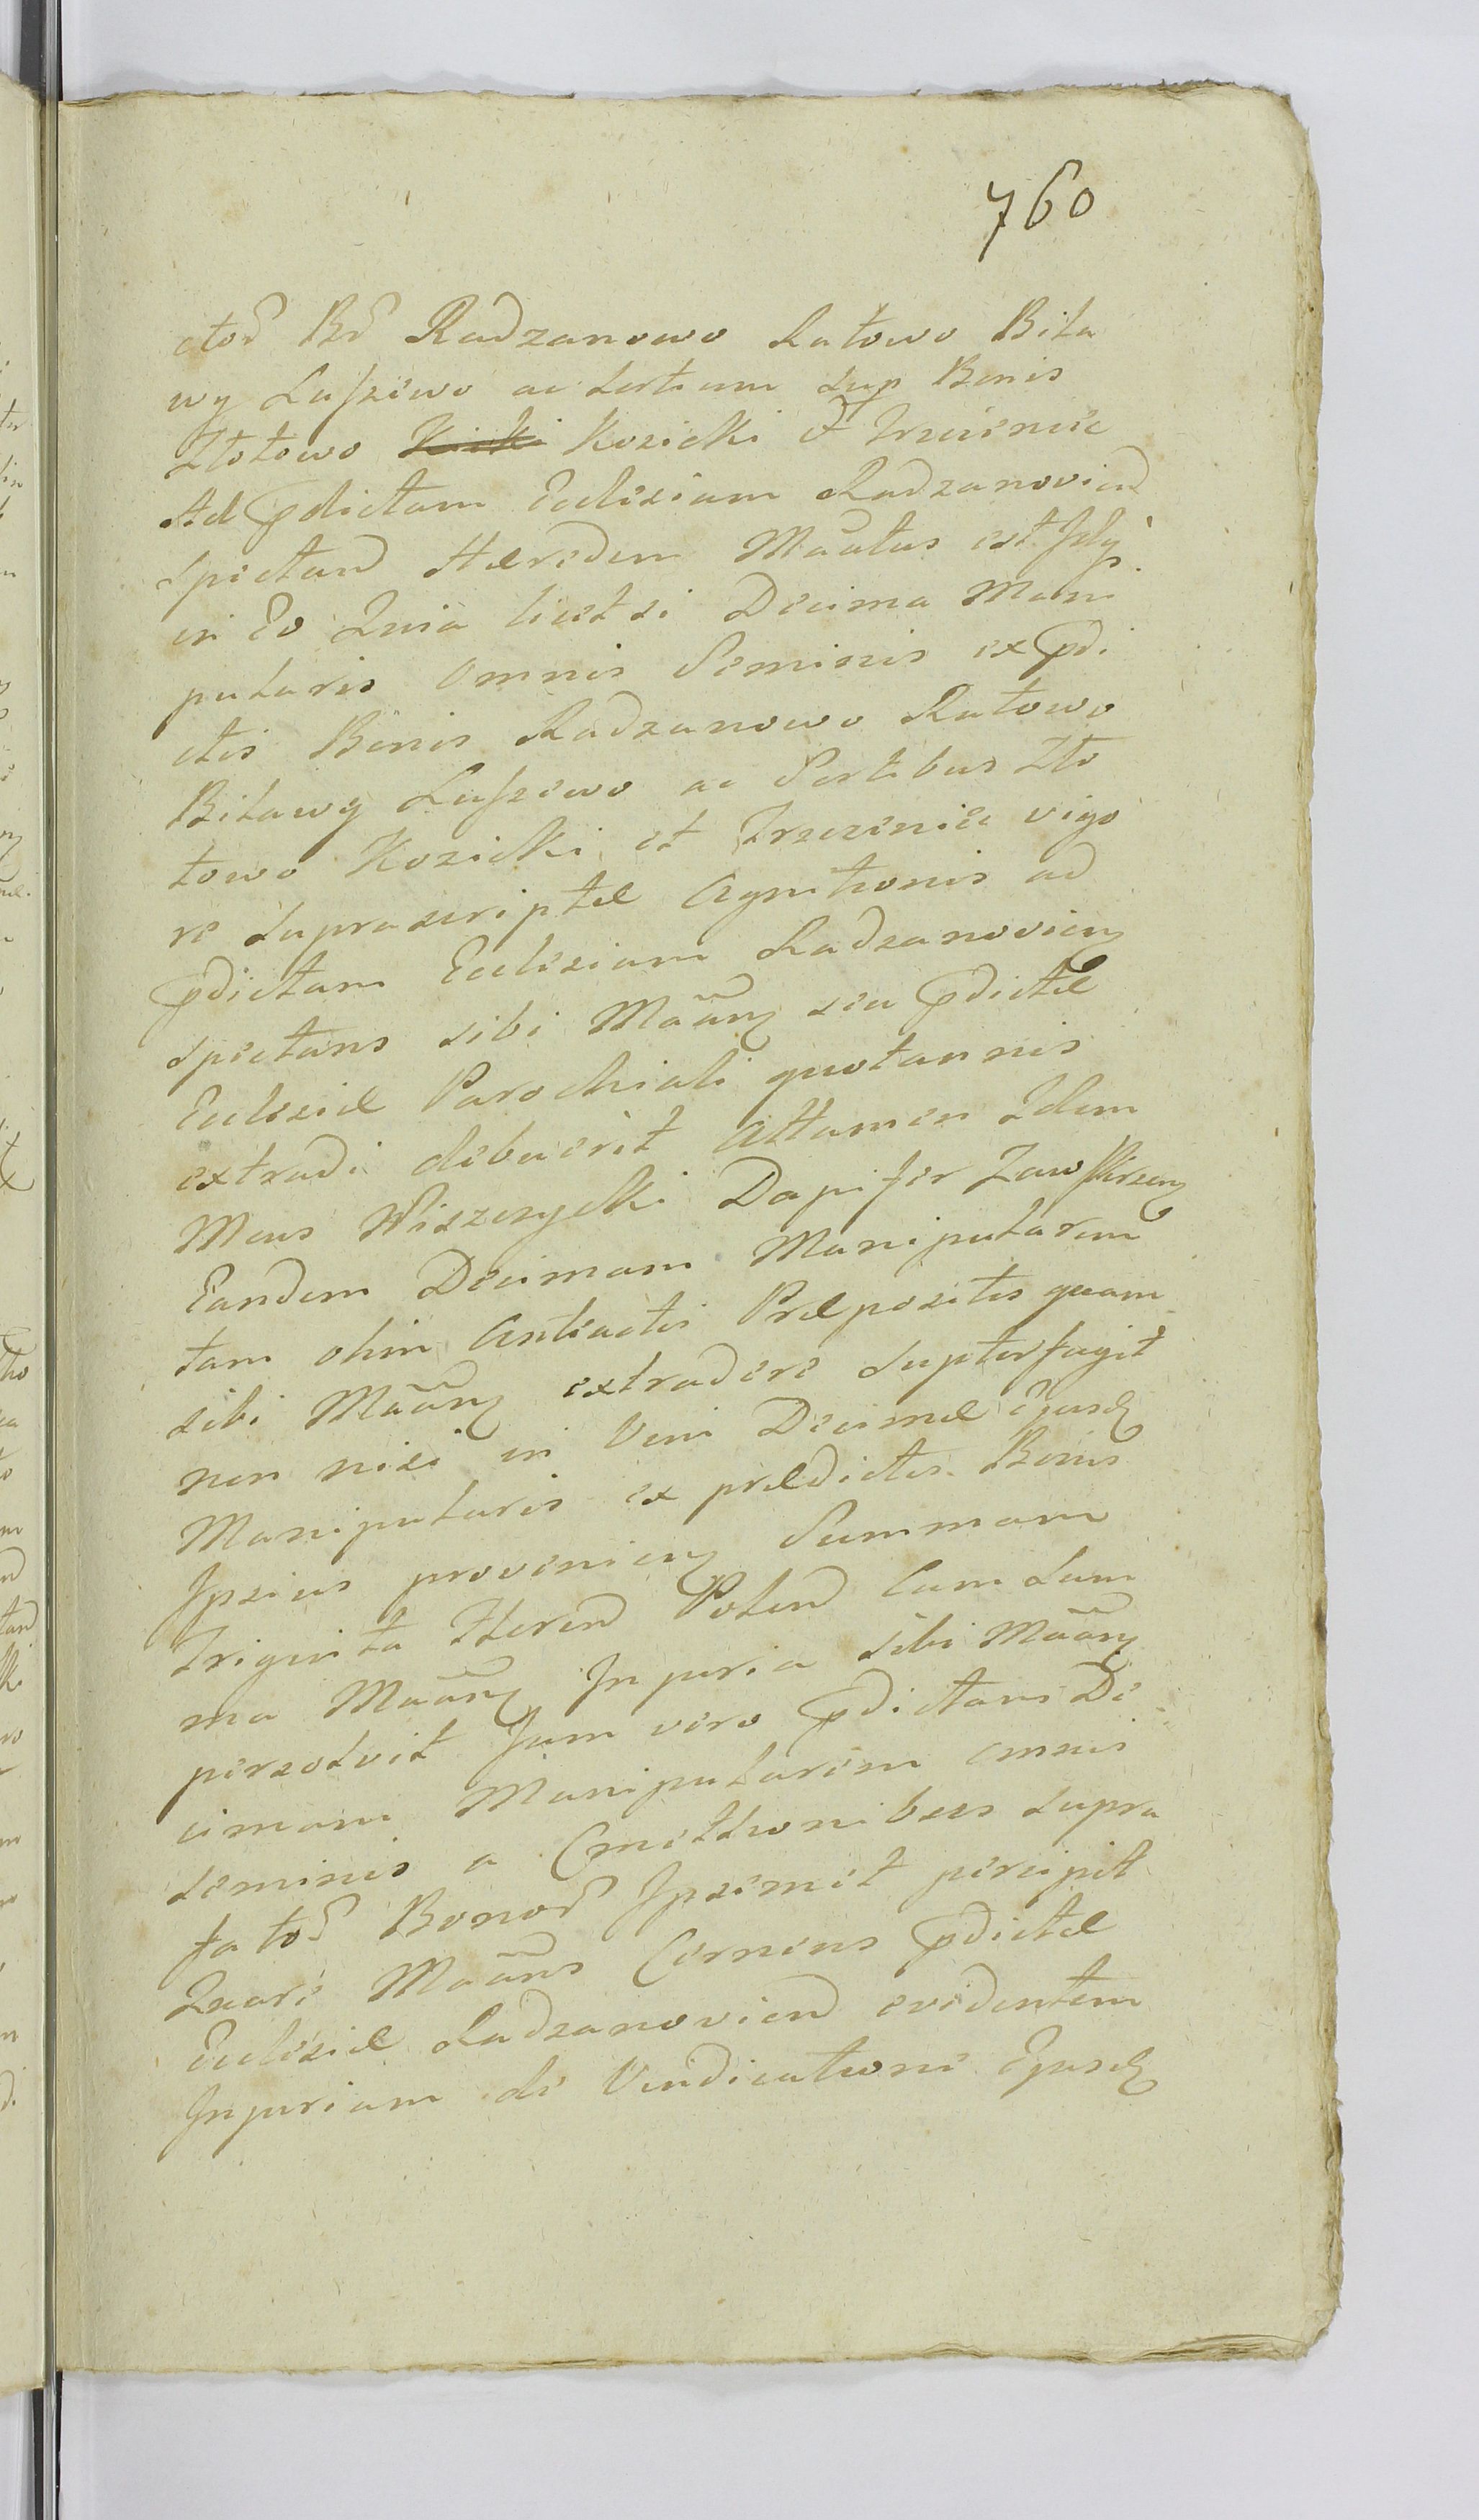 760
ctor̃ Br̃ Radzanowo Ratowo Bita
wy Luszewo ac Sortium Sup Bonis
Złotowo Kozicki et Trzcinice
Ad pdictam Ecclesiam Radzanovien
spectand Hæredem Maãtus est
in Eo Quia licet si Decima Mani
pularis Omnis Seminis ex pdi
ctis Bonis Radzanowo Ratowo
Bitawy Luszewo ac Sortibus Zło
towo Kozicki et Trzczenice vigo
re Suprascriptæ Agnitionis ad
pdictam Ecclesiam Radzanovien
spectans sibi Maãn seu pdictæ
Ecclesiæ Parochiali quotannis
extradi debuerit Attamen Idem
Mcus Wiszczycki Dapifer Zawskrzen
Eandem Decimam Manipularem
tam olim Anteactis Præpositis quam
sibi Maãn extradere Supterfugit
non nisi in Vim Decimæ Ejusd
Manipularis ex prædictis Bonis
Ipsius provenien Summam
Triginta floren Polon Cum Sum
ma Maãn Injuria sibi Maãn
persolvit Jam vero pdictam De
cimam Manipularem omnis
seminis a Cmethonibus Supra
fator̃ Bonor̃ Ipsemet percipit
Quare Maãns Cernens pdictæ
Ecclesiæ Radzanovien evidentem
Injuriam de Vindicatione Ejusd